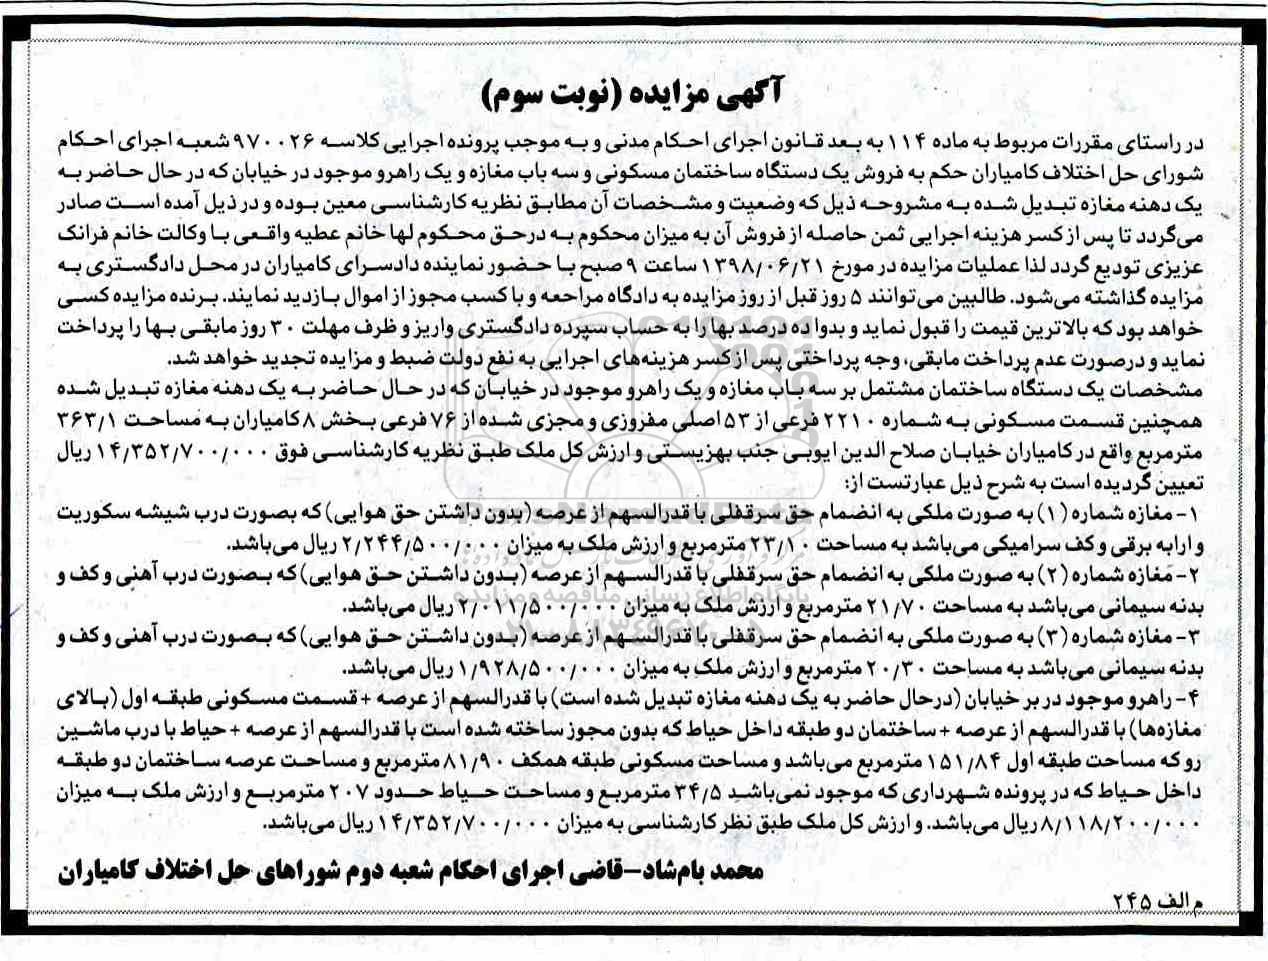 آگهی مزایده (نوبت سوم)
در راستای مقررات مربوط به ماده ۱۱۴ به بعد قانون اجرای احکام مدنی و به موجب پرونده اجرایی کلاسه ۹۷۰۰۲۶ شعبه اجرای احکام
شورای حل اختلاف کامیاران حکم به فروش یک دستگاه ساختمان مسکونی و سه باب مغازه و یک راهرو موجود در خیابان که در حال حاضر به
یک دهنه مغازه تبدیل شده به مشروحه ذیل که وضعیت و مشخصات آن مطابق نظریه کارشناسی معین بوده و در ذیل آمده است صادر
می‌گردد تا پس از کسر هزینه اجرایی ثمن حاصله از فروش آن به میزان محکوم به درحق محکوم لها خانم عطیه واقعی با وکالت خانم فرانک
عزیزی تودیع گردد لذا عملیات مزایده در مورخ ۱۳۹۸/۰۶/۲۱ ساعت ۹ صبح با حضور نماینده دادسرای کامیاران در محل دادگستری به
مزایده گذاشته می‌شود. طالبین می‌توانند ۵ روز قبل از روز مزایده به دادگاه مراحعه و با کسب مجوز از اموال بازدید نمایند. برنده مزایده کسی
خواهد بود که بالاترین قیمت را قبول نماید و بدوا ده درصد بها را به حساب سپرده دادگستری واریز و ظرف مهلت ۳۰ روز مابقی بها را پرداخت
نماید و درصورت عدم پرداخت مابقی، وجه پرداختی پس از کسر هزینه‌های اجرایی به نفع دولت ضبط و مزایده تجدید خواهد شد.
مشخصات یک دستگاه ساختمان مشتمل بر سه باب مغازه و یک راهرو موجود در خیابان که در حال حاضر به یک دهنه مغازه تبدیل شده
همچنین قسمت مسکونی به شماره ۲۲۱۰ فرعی از ۵۳ اصلی مفروزی و مجزی شده از ۷۶ فرعی بخش ۸ کامیاران به مساحت ۳۶۳/۱
مترمربع واقع در کامیاران خیابان صلاح الدین ایوبی جنب بهزیستی و ارزش کل ملک طبق نظریه کارشناسی فوق ۱۴/۳۵۲/۷۰۰/۰۰۰ ریال
تعیین گردیده است به شرح ذیل عبارتست از:
۱- مغازه شماره (۱) به صورت ملکی به انضمام حق سرقفلی با قدرالسهم از عرصه (بدون داشتن حق هوایی) که بصورت درب شیشه سکوریت
و ارابه برقی و کف سرامیکی می‌باشد به مساحت ۲۳/۱۰ مترمربع و ارزش ملک به میزان ۲/۲۴۴/۵۰۰/۰۰۰ ریال می‌باشد.
۲- مغازه شماره (۲) به صورت ملکی به انضمام حق سرقفلی با قدرالسهم از عرصه (بدون داشتن حق هوایی) که بصورت درب آهنی و کف و
بدنه سیمانی می‌باشد به مساحت ۲۱/۷۰ مترمربع و ارزش ملک به میزان ۲/۰۱۱/۵۰۰/۰۰۰ ریال می‌باشد.
۳- مغازه شماره (۳) به صورت ملکی به انضمام حق سرقفلی با قدرالسهم از عرصه (بدون داشتن حق هوایی) که بصورت درب آهنی و کف و
بدنه سیمانی می‌باشد به مساحت ۲۰/۳۰ مترمربع و ارزش ملک به میزان ۱/۹۲۸/۵۰۰/۰۰۰ ریال می‌باشد.
۴- راهرو موجود در بر خیابان (درحال حاضر به یک دهنه مغازه تبدیل شده است) با قدرالسهم از عرصه + قسمت مسکونی طبقه اول (بالای
مغازه‌ها) با قدرالسهم از عرصه + ساختمان دو طبقه داخل حیاط که بدون مجوز ساخته شده است با قدرالسهم از عرصه + حیاط با درب ماشین
رو که مساحت طبقه اول ۱۵۱/۸۴ مترمربع می‌باشد و مساحت مسکونی طبقه همکف ۸۱/۹۰ مترمربع و مساحت عرصه ساختمان دو طبقه
داخل حیاط که در پرونده شهرداری که موجود نمی‌باشد ۳۴/۵ مترمربع و مساحت حیاط حدود ۲۰۷ مترمربع و ارزش ملک به میزان
۸/۱۱۸/۲۰۰/۰۰۰ ریال می‌باشد. و ارزش کل ملک طبق نظر کارشناسی به میزان ۱۴/۳۵۲/۷۰۰/۰۰۰ ریال می‌باشد.
محمد بام‌شاد-قاضی اجرای احکام شعبه دوم شوراهای حل اختلاف کامیاران
م الف ۲۴۵